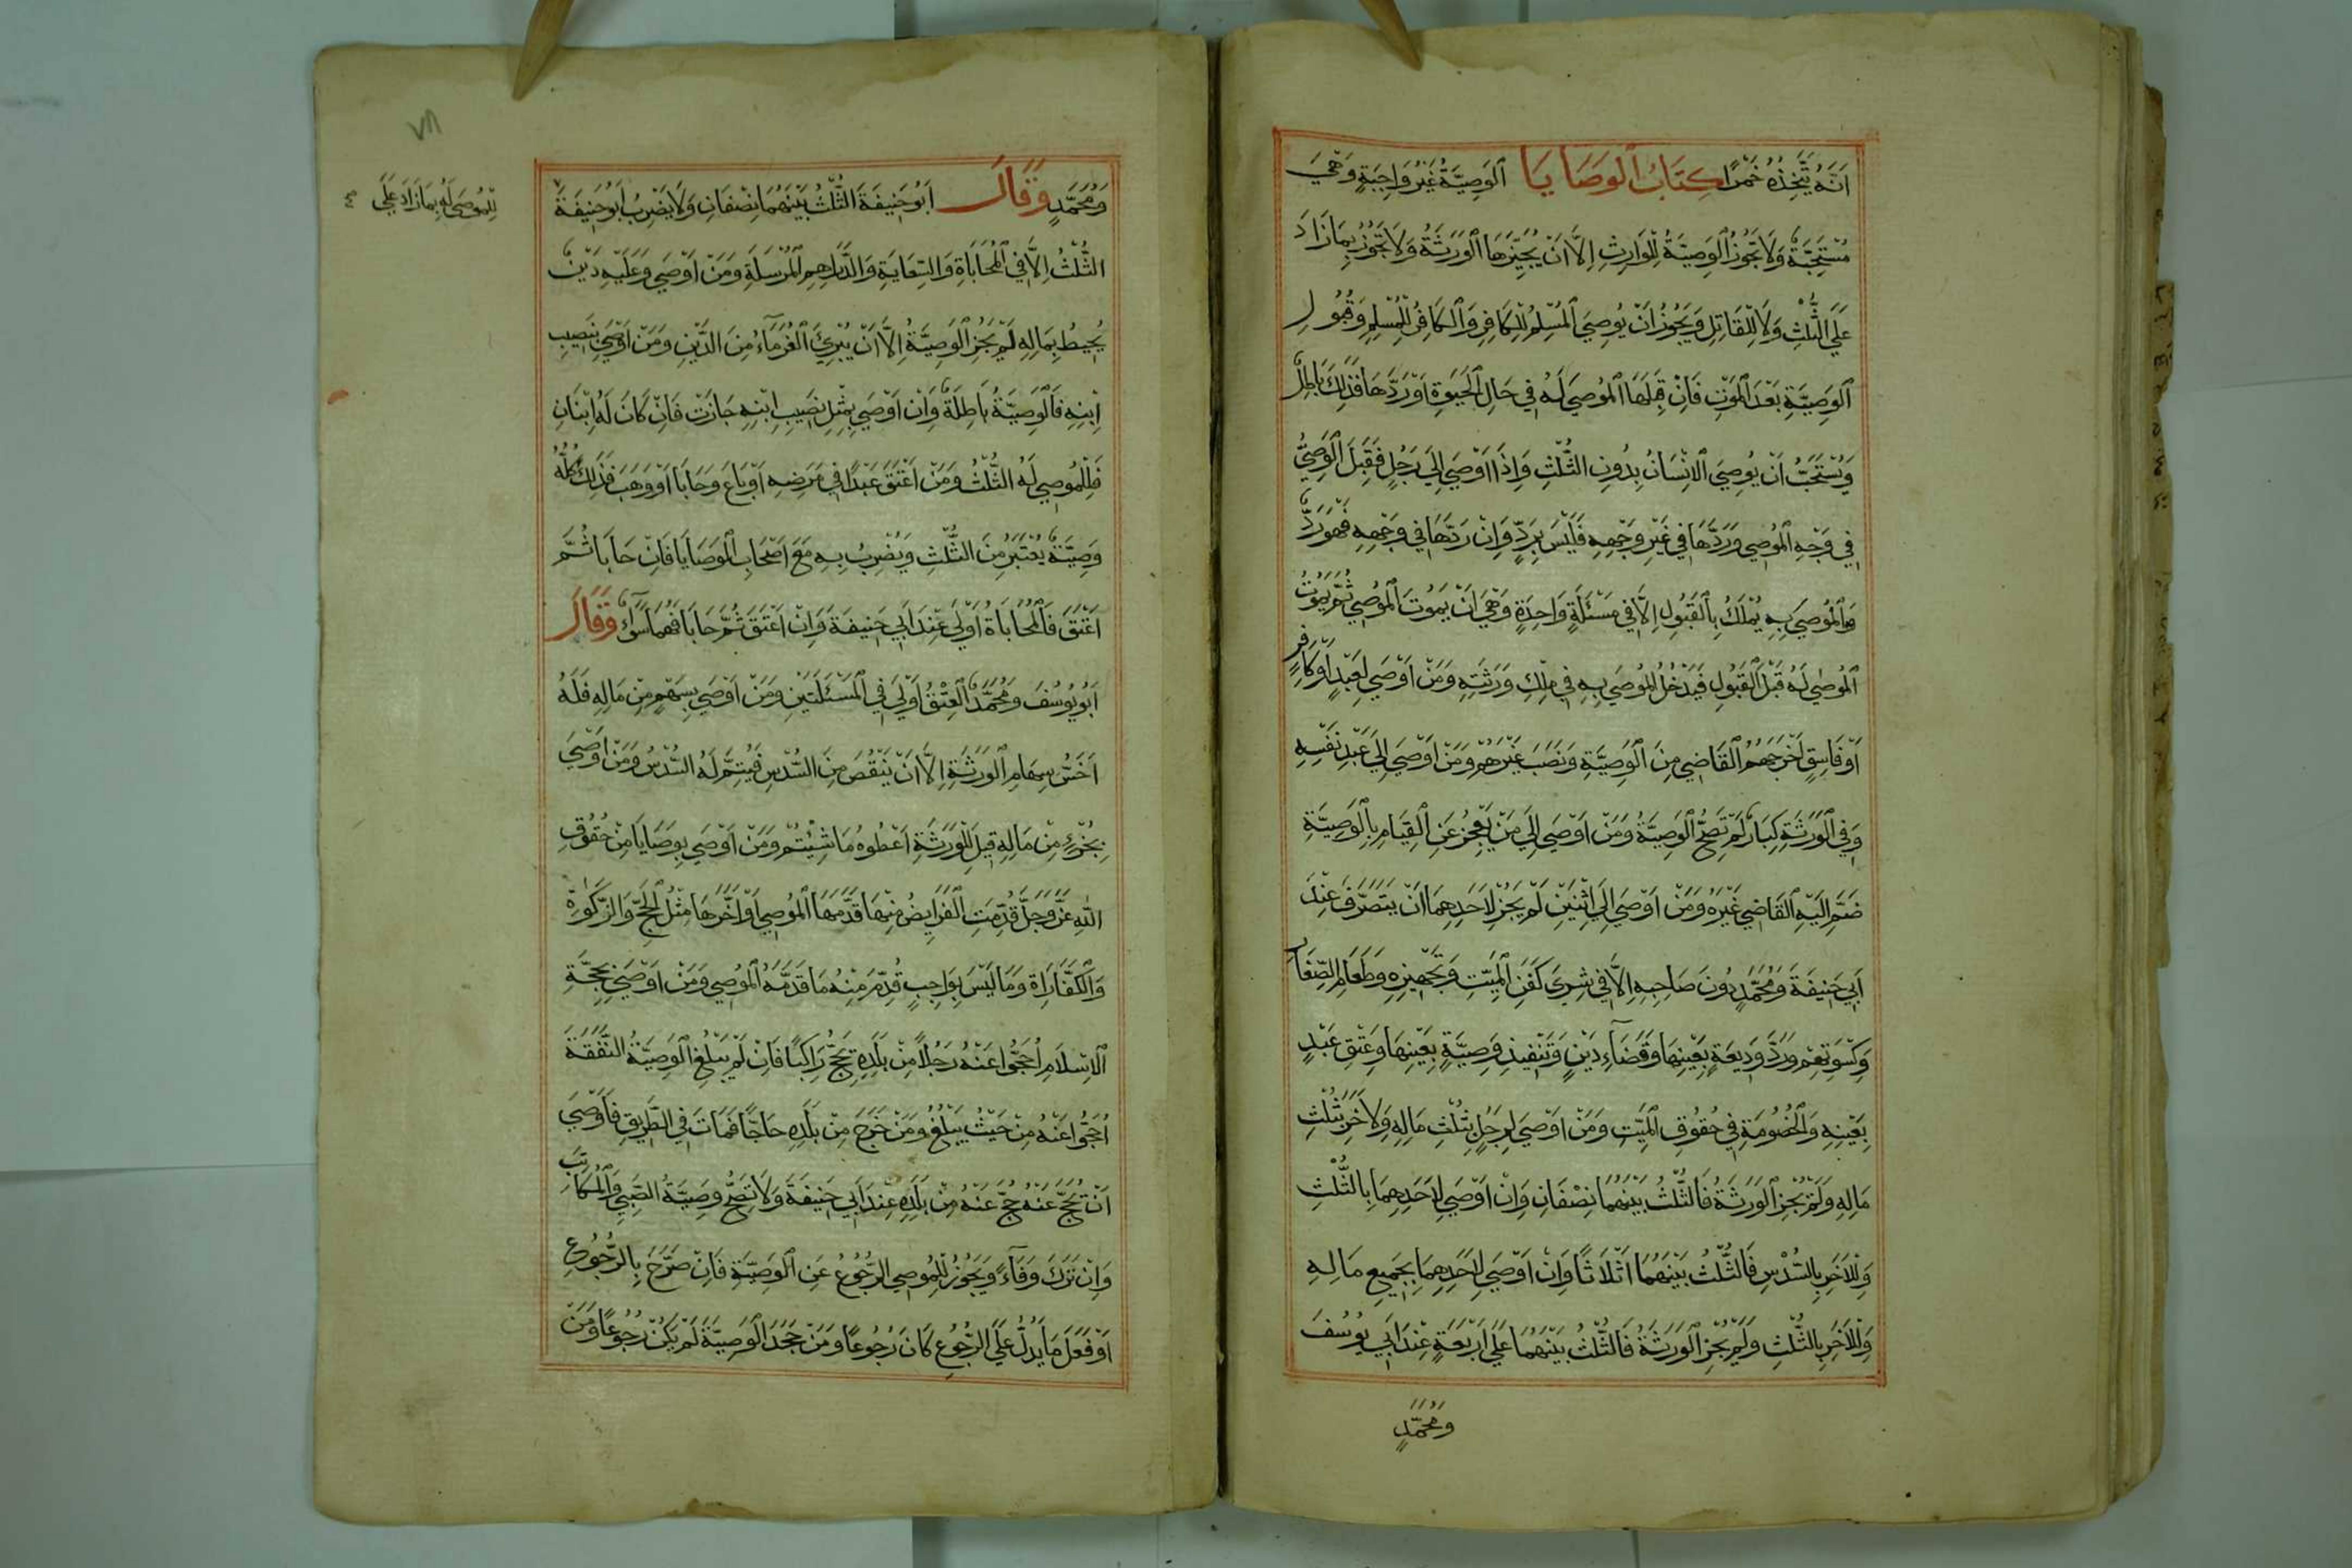 اَنَّهُ يَتَّخِذُهُ خَمْرًا كِتَابُ الْوَصَايَا اَلْوَصِيَّةُ غَيْرُ وَاجِبَةٍ وَهِيَ
مُسْتَحَبَّةٌ وَلَا تَجُوزُ الْوَصِيَّةُ لِلْوَارِثِ اِلَّا اَنْ يُجِيْزَهَا الْوَرَثَةُ وَلَا تَجُوْزُ بِمَا زَادَ
عَلَى الثُّلُثِ وَلَا لِلْقَاتِلِ وَيَجُوزُ اَنْ يُوصِيَ الْمُسْلِمُ لِلْكَافِرِ وَالْكَافِرُ لِلْمُسْلِمِ وَقُبُولُ
الْوَصِيَّةِ بَعْدَ الْمَوْتِ فَاِنْ قَبِلَهَا الْمُوصَى لَهُ فِي حَالِ الْحَيٰوةِ اَوْ رَدَّهَا فَذٰلِكَ بَاطِلٌ
وَيُسْتَحَبُّ اَنْ يُوصِيَ الْاِنْسَانُ بِدُونِ الثُّلُثِ وَاِذَا اَوْصَى اِلَى رَجُلٍ فَقَبِلَ الْوَصِيُّ
فِي وَجْهِ الْمُوصِي وَرَدَّهَا فِي غَيْرِ وَجْهِهِ فَلَيْسَ بِرَدٍّ وَاِنْ رَدَّهَا فِي وَجْهِهِ فَهُوَ رَدٌّ
وَالْمُوصَى بِهِ يُمْلَكُ بِالْقَبُولِ اِلَّا فِي مَسْئَلَةٍ وَاحِدَةٍ وَهِيَ اَنْ يَمُوتَ الْمُوصِي ثُمَّ يَمُوتُ
الْمُوصٰى لَهُ قَبْلَ الْقَبُولِ فَيَدْخُلُ الْمُوصَى بِهِ فِي مِلْكِ وَرَثَتِهِ وَمَنْ اَوْصَى لِعَبْدٍ اَوْ كَافِرٍ
اَوْ فَاسِقٍ اَخْرَجَهُمُ الْقَاضِي مِنَ الْوَصِيَّةِ وَنَصَبَ غَيْرَهُمْ وَمَنْ اَوْصَى اِلَى عَبْدِ نَفْسِهِ
وَفِي الْوَرَثَةِ كِبَارٌ لَمْ تَصِحُّ الْوَصِيَّةُ وَمَنْ اَوْصَى اِلَى مَنْ يَعْجِزُ عَنِ الْقِيَامِ بِالْوَصِيَّةِ
ضَمَّ اِلَيْهِ الْقَاضِي غَيْرَهُ وَمَنْ اَوْصَى اِلَى اثْنَيْنِ لَمْ يَجُزْ لِاَحَدِهِمَا اَنْ يَتَصَرَّفَ عِنْدَ
اَبِي حَنِيفَةَ وَمُحَمَّدٍ دُونَ صَاحِبِهِ اِلَّا فِي شِرَى كَفَنِ الْمَيِّتِ وَتَجْهِيزِهِ وَطَعَامِ الصِّغَارِ
وَكِسْوَتِهِمْ وَرَدِّ وَدِيعَةٍ بِعَيْنِهَا وَقَضَاءِ دَيْنٍ وَتَنْفِيذِ وَصِيَّةٍ بِعَيْنِهَا وَعِتْقِ عَبْدٍ
بِعَيْنِهِ وَالْخُصُومَةِ فِي حُقُوقِ الْمَيِّتِ وَمَنْ اَوْصَى لِرَجُلٍ بِثُلُثِ مَالِهِ وَلِاٰخَرَ بِثُلُثِ
مَالِهِ وَلَمْ تُجِزِ الْوَرَثَةُ فَالثُّلُثُ بَيْنَهُمَا نِصْفَانِ وَاِنْ اَوْصَى لِاَحَدِهِمَا بِالثُّلُثِ
وَلِلْاٰخَرِ بِالسُّدُسِ فَالثُّلُثُ بَيْنَهُمَا اَثْلَاثًا وَاِنْ اَوْصَى لِاَحَدِهِمَا بِجَمِيعِ مَالِهِ
وَلِلْاٰخَرِ بِالثُّلُثِ وَلَمْ تُجِزِ الْوَرَثَةُ فَالثُّلُثُ بَيْنَهُمَا عَلَى اَرْبَعَةٍ عِنْدَ اَبِي يُوسُفَ
وَمُحَمَّدٍ
٧٨
وَمُحَمَّدٍ وَقَالَ اَبُو حَنِيفَةَ الثُّلُثُ بَيْنَهُمَا نِصْفَانِ وَلَا يَضْرِبُ اَبُو حَنِيفَةَ
لِلْمُوصَى لَهُ بِمَا زَادَ عَلَى
الثُّلُثُ اِلَّا فِي الْمُحَابَاةِ وَالسِّعَايَةِ وَالدَّرَاهِمِ الْمُرْسَلَةِ وَمَنْ اَوْصَى وَعَلَيْهِ دَيْنٌ
يُحِيطُ بِمَالِهِ لَمْ يَجُزِ الْوَصِيَّةُ اِلَّا اَنْ يُبْرِئَ الْغُرَمَاءُ مِنَ الدَّيْنِ وَمَنْ اَوْصَى بِنَصِيبِ
اِبْنِهِ فَالْوَصِيَّةُ بَاطِلَةٌ وَاِنْ اَوْصَى بِمِثْلِ نَصِيبِ ابْنِهِ جَازَتْ فَاِنْ كَانَ لَهُ اِبْنَانِ
فَلِلْمُوصَى لَهُ الثُّلُثُ وَمَنْ اَعْتَقَ عَبْدًا فِي مَرَضِهِ اَوْ بَاعَ وَحَابَا اَوْ وَهَبَ فَذٰلِكَ كُلُّهُ
وَصِيَّةٌ يُعْتَبَرُ مِنَ الثُّلُثِ وَيُضْرِبُ بِهِ مَعَ اَصْحَابِ الْوَصَايَا فَاِنْ حَابَا ثُمَّ
اَعْتَقَ فَالْمُحَابَاةُ اَوْلَى عِنْدَ اَبِي حَنِيفَةَ وَاِنْ اَعْتَقَ ثُمَّ حَابَا فَهُمَا سَوَاءٌ وَقَالَ
اَبُو يُوسُفَ وَمُحَمَّدٌ الْعِتْقُ اَوْلَى فِي الْمَسْئَلَتَيْنِ وَمَنْ اَوْصَى بِسَهْمٍ مِنْ مَالِهِ فَلَهُ
اَخَسُّ سِهَامِ الْوَرَثَةِ اِلَّا اَنْ يَنْقُصَ مِنَ السُّدُسِ فَيُتِمُّ لَهُ السُّدُسُ وَمَنْ اَوْصَى
بِجُزْءٍ مِنْ مَالِهِ قِيلَ لِلْوَرَثَةِ اَعْطُوهُ مَا شِئْتُمْ وَمَنْ اَوْصَى بِوَصَايَا مِنْ حُقُوقِ
اللّٰهِ عَزَّ وَجَلَّ قُدِّمَتِ الْفَرَايِضُ مِنْهَا قَدَّمَهَا الْمُوصِي اَوْ اَخَّرَهَا مِثْلُ الْحَجِّ وَالزَّكٰوةِ
وَالْكَفَّارَاةِ وَمَا لَيْسَ بِوَاجِبٍ قُدِّمَ مِنْهُ مَا قَدَّمَهُ الْمُوصِي وَمَنْ اَوْصَى بِحَجَّةِ
الْاِسْلَامِ اَحَجُّوا عَنْهُ رَجُلًا مِنْ بَلَدِهِ يَحُجُّ رَاكِبًا فَاِنْ لَمْ يَبْلُغِ الْوَصِيَّةُ النَّفَقَةَ
اَحَجُّوا عَنْهُ مِنْ حَيْثُ يَبْلُغُ وَمَنْ خَرَجَ مِنْ بَلَدِهِ حَاجًّا فَمَاتَ فِي الطَّرِيقِ فَاَوْصَى
اَنْ يُحَجَّ عَنْهُ حُجَّ عَنْهُ مِنْ بَلَدِهِ عِنْدَ اَبِي حَنِيفَةَ وَلَا تَصِحُّ وَصِيَّةُ الصَّبِيِّ وَالْمُكَاتَبِ
وَاِنْ تَرَكَ وَفَاءً وَيَجُوزُ لِلْمُوصِي الرُّجُوعُ عَنِ الْوَصِيَّةِ فَاِنْ صَرَّحَ بِالرُّجُوعِ
اَوْ فَعَلَ مَا يَدُلُّ عَلَى الرُّجُوعِ كَانَ رُجُوعًا وَمَنْ جَحَدَ الْوَصِيَّةَ لَمْ يَكُنْ رُجُوعًا وَمَنْ